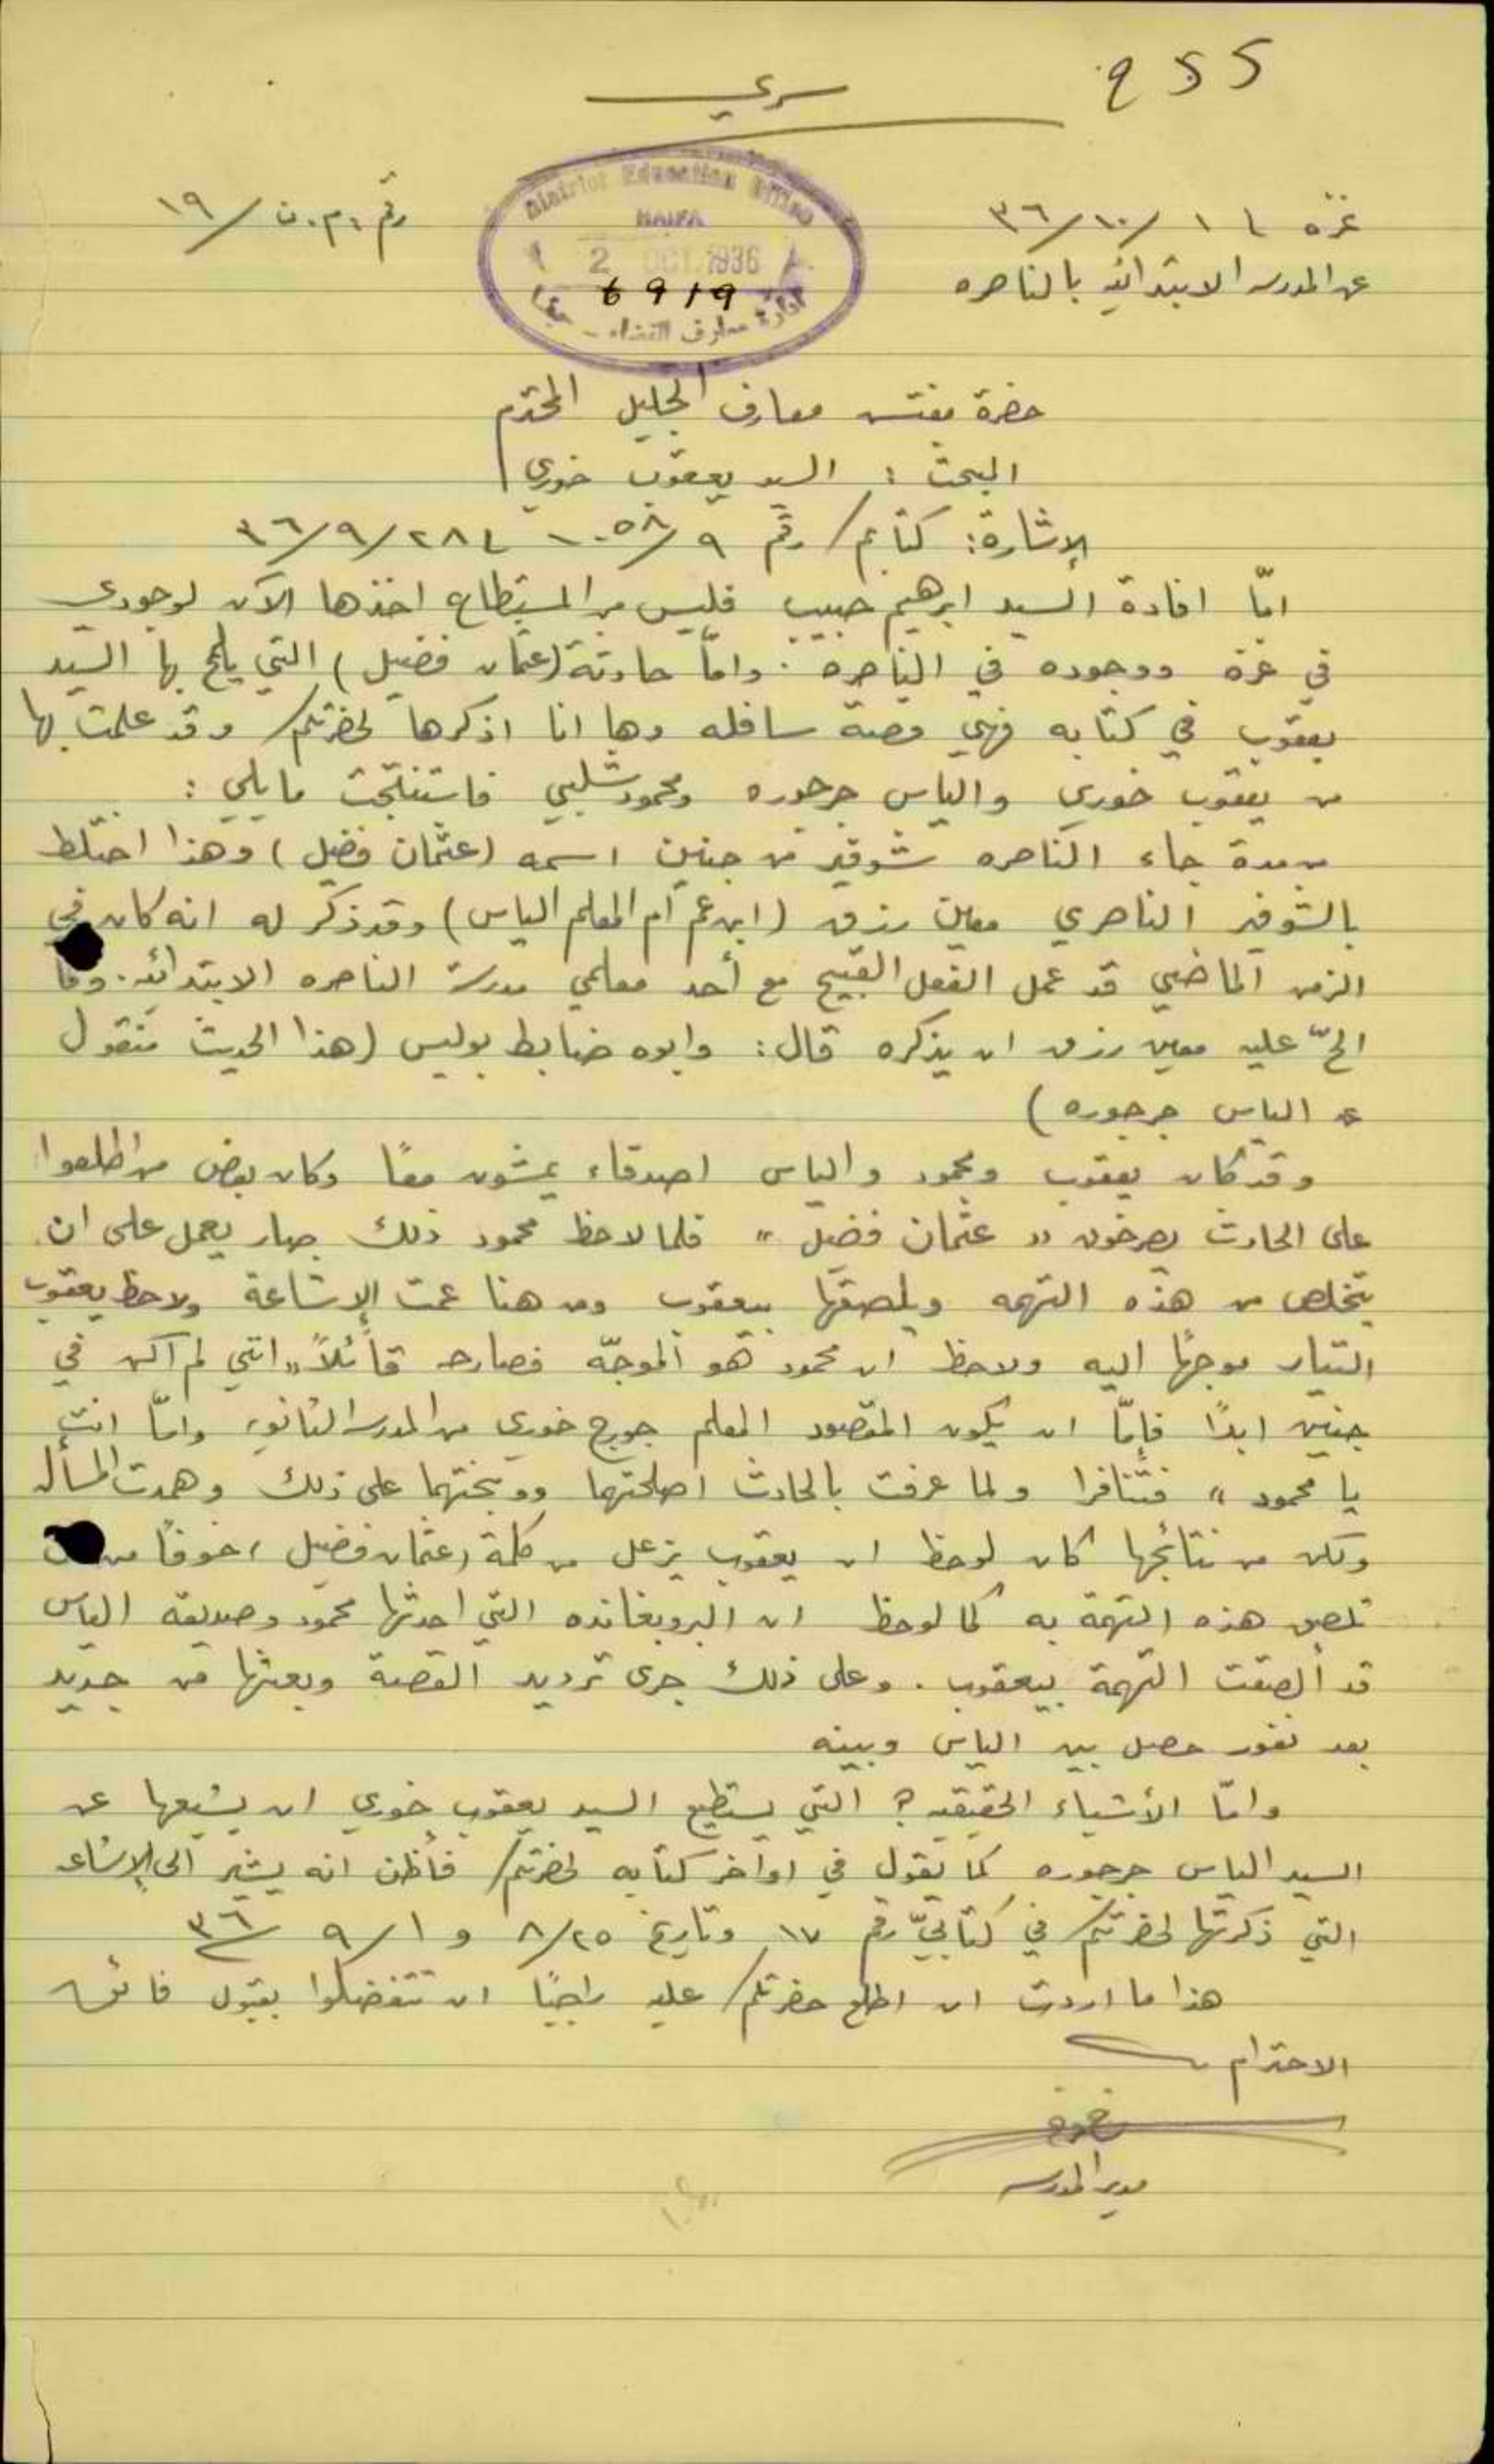 855
سري
رقم م. ن / ١٩
District Education Office
HAIFA
2 OCT 1936
6919
ادارة معارف القضاء - حيفا
غزه ١ / ١٠ / ٣٦
عن المدرسه الابتدائيه بالناصره
حضرة مفتش معارف الجليل المحترم
البحث : السيد يعقوب خوري
الإشارة: كتابكم رقم ٩/١٠٥٨ ٢٨/٩/٣٦
امّا افادة السيد ابرهيم حبيب فليس من المستطاع اخذها الآن لوجودي
في غزة ووجوده في الناصره . وامّا حادثة (عثمان فضيل) التي يلمح بها السيد
يعقوب في كتابه فهي قصة سافله وها انا اذكرها لحضرتكم وقد علمت بها
من يعقوب خوري والياس جرجوره ومحمود شلبي فاستنتجت ما يلي :
من مدة جاء الناصره شوفير من جنين اسمه (عثمان فضيل) وهذا اختلط
بالشوفير الناصري معين رزق (ابن عم ام المعلم الياس) وقد ذكر له انه كان في
الزمن الماضي قد عمل الفعل القبيح مع أحد معلمي مدرسة الناصره الابتدائيه. ولما
الحّ عليه معين رزق ان يذكره قال: وابوه ضابط بوليس (هذا الحديث منقول
عن الياس جرجوره)
وقد كان يعقوب ومحمود والياس اصدقاء يمشون معًا وكان بعض من اطلعوا
على الحادث يصرخون " عثمان فضيل " فلما لاحظ محمود ذلك صار يعمل على ان
يتخلص من هذه التهمه ويلصقها بيعقوب ومن هنا عمت الإشاعة ولاحظ يعقوب
التيار موجهًا اليه ولاحظ ان محمود هو الموجّه فصارحه قائلاً " انني لم اكن في
جنين ابدًا فإمّا ان يكون المقصود المعلم جورج خوري من المدرسه الثانويه وامّا انت
يا محمود " فتنافرا ولما عرفت بالحادث اصلحتهما ووبختهما على ذلك وهمدت المسأله
ولكن من نتائجها كان لوحظ ان يعقوب يزعل من كلمة (عثمان فضيل) خوفًا من ان
تلصق هذه التهمة به كما لوحظ ان البروبغانده التي احدثها محمود وصديقه الياس
قد ألصقت التهمة بيعقوب . وعلى ذلك جرى ترديد القصة وبعثها من جديد
بعد نفور حصل بين الياس وبينه
وامّا الأشياء الحقيقيه؟ التي يستطيع السيد يعقوب خوري ان يشيعها عن
السيد الياس جرجوره كما تقول في اواخر كتابه لحضرتكم فأظن انه يشير الى الإشاعه
التي ذكرتها لحضرتكم في كتابيّ رقم ١٧ وتاريخ ٢٥/٨ و ١/٩ ٣٦
هذا ما اردت ان اطلع حضرتكم عليه راجيًا ان تتفضلوا بقبول فائق
الاحترام
مدير المدرسه